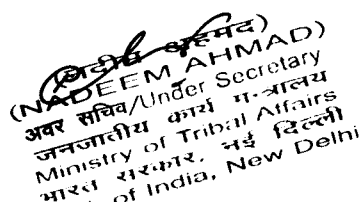 (नदीम अहमद)
(NADEEM AHMAD)
अवर सचिव/Under Secretary
जनजातीय कार्य मंत्रालय
Ministry of Tribal Affairs
भारत सरकार, नई दिल्ली
of India, New Delhi